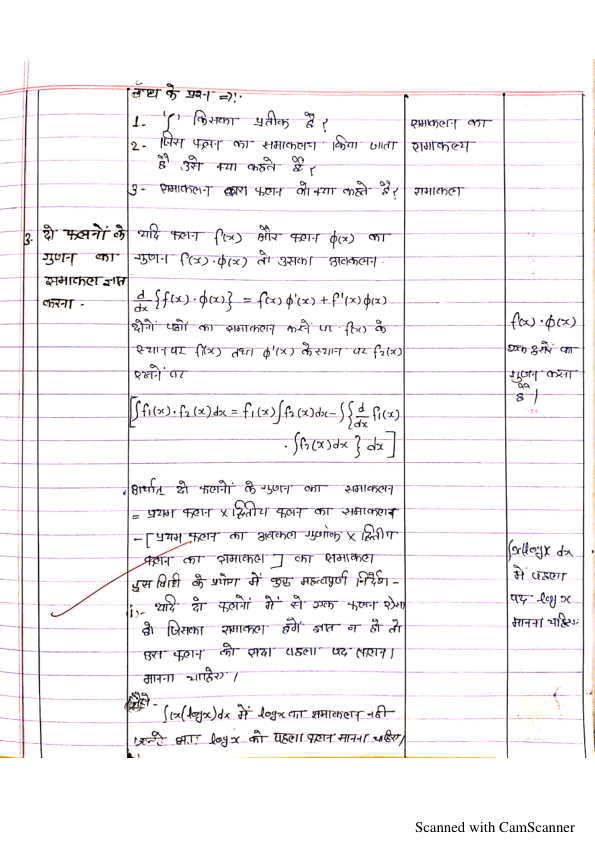 बोध के प्रश्न =>:-
1. '∫' किसका प्रतीक है ?
समाकलन का
2- जिस फलन का समाकलन किया जाता
समाकल्य
है उसे क्या कहते है ?
3- समाकलन द्वारा फलन को क्या कहते है ?
समाकल
3. दो फलनों के
गुणन का
समाकल ज्ञात
करना -
यदि फलन f(x) और फलन ϕ(x) का
गुणन f(x)·ϕ(x) तो उसका अवकलन
d/dx {f(x)·ϕ(x)} = f(x) ϕ'(x) + f'(x) ϕ(x)
दोनों पक्षों का समाकलन करने पर f(x) के
स्थान पर f1(x) तथा ϕ'(x) के स्थान पर f2(x)
रखने पर
[∫f1(x)·f2(x)dx = f1(x)∫f2(x)dx - ∫{d/dx f1(x)
·∫f2(x)dx } dx]
f(x)·ϕ(x)
एक दूसरे का
गुणन करता
है |
अर्थात् दो फलनों के गुणन का समाकलन
= प्रथम फलन × द्वितीय फलन का समाकलन
- [प्रथम फलन का अवकल गुणांक × द्वितीय
फलन का समाकल ] का समाकल
इस विधि के प्रयोग में कुछ महत्वपूर्ण निर्देश -
i;- यदि दो फलनों में से एक फलन ऐसा
हो जिसका समाकल हमें ज्ञात न हो तो
उस फलन को सदा पहला पद
मानना चाहिए |
जैसे-
∫x(logx)dx में logx का समाकलन नही
अतः logx को पहला फलन मानना चाहिए |
∫x(logx dx
में पहला
पद log x
मानना चाहिए
Scanned with CamScanner